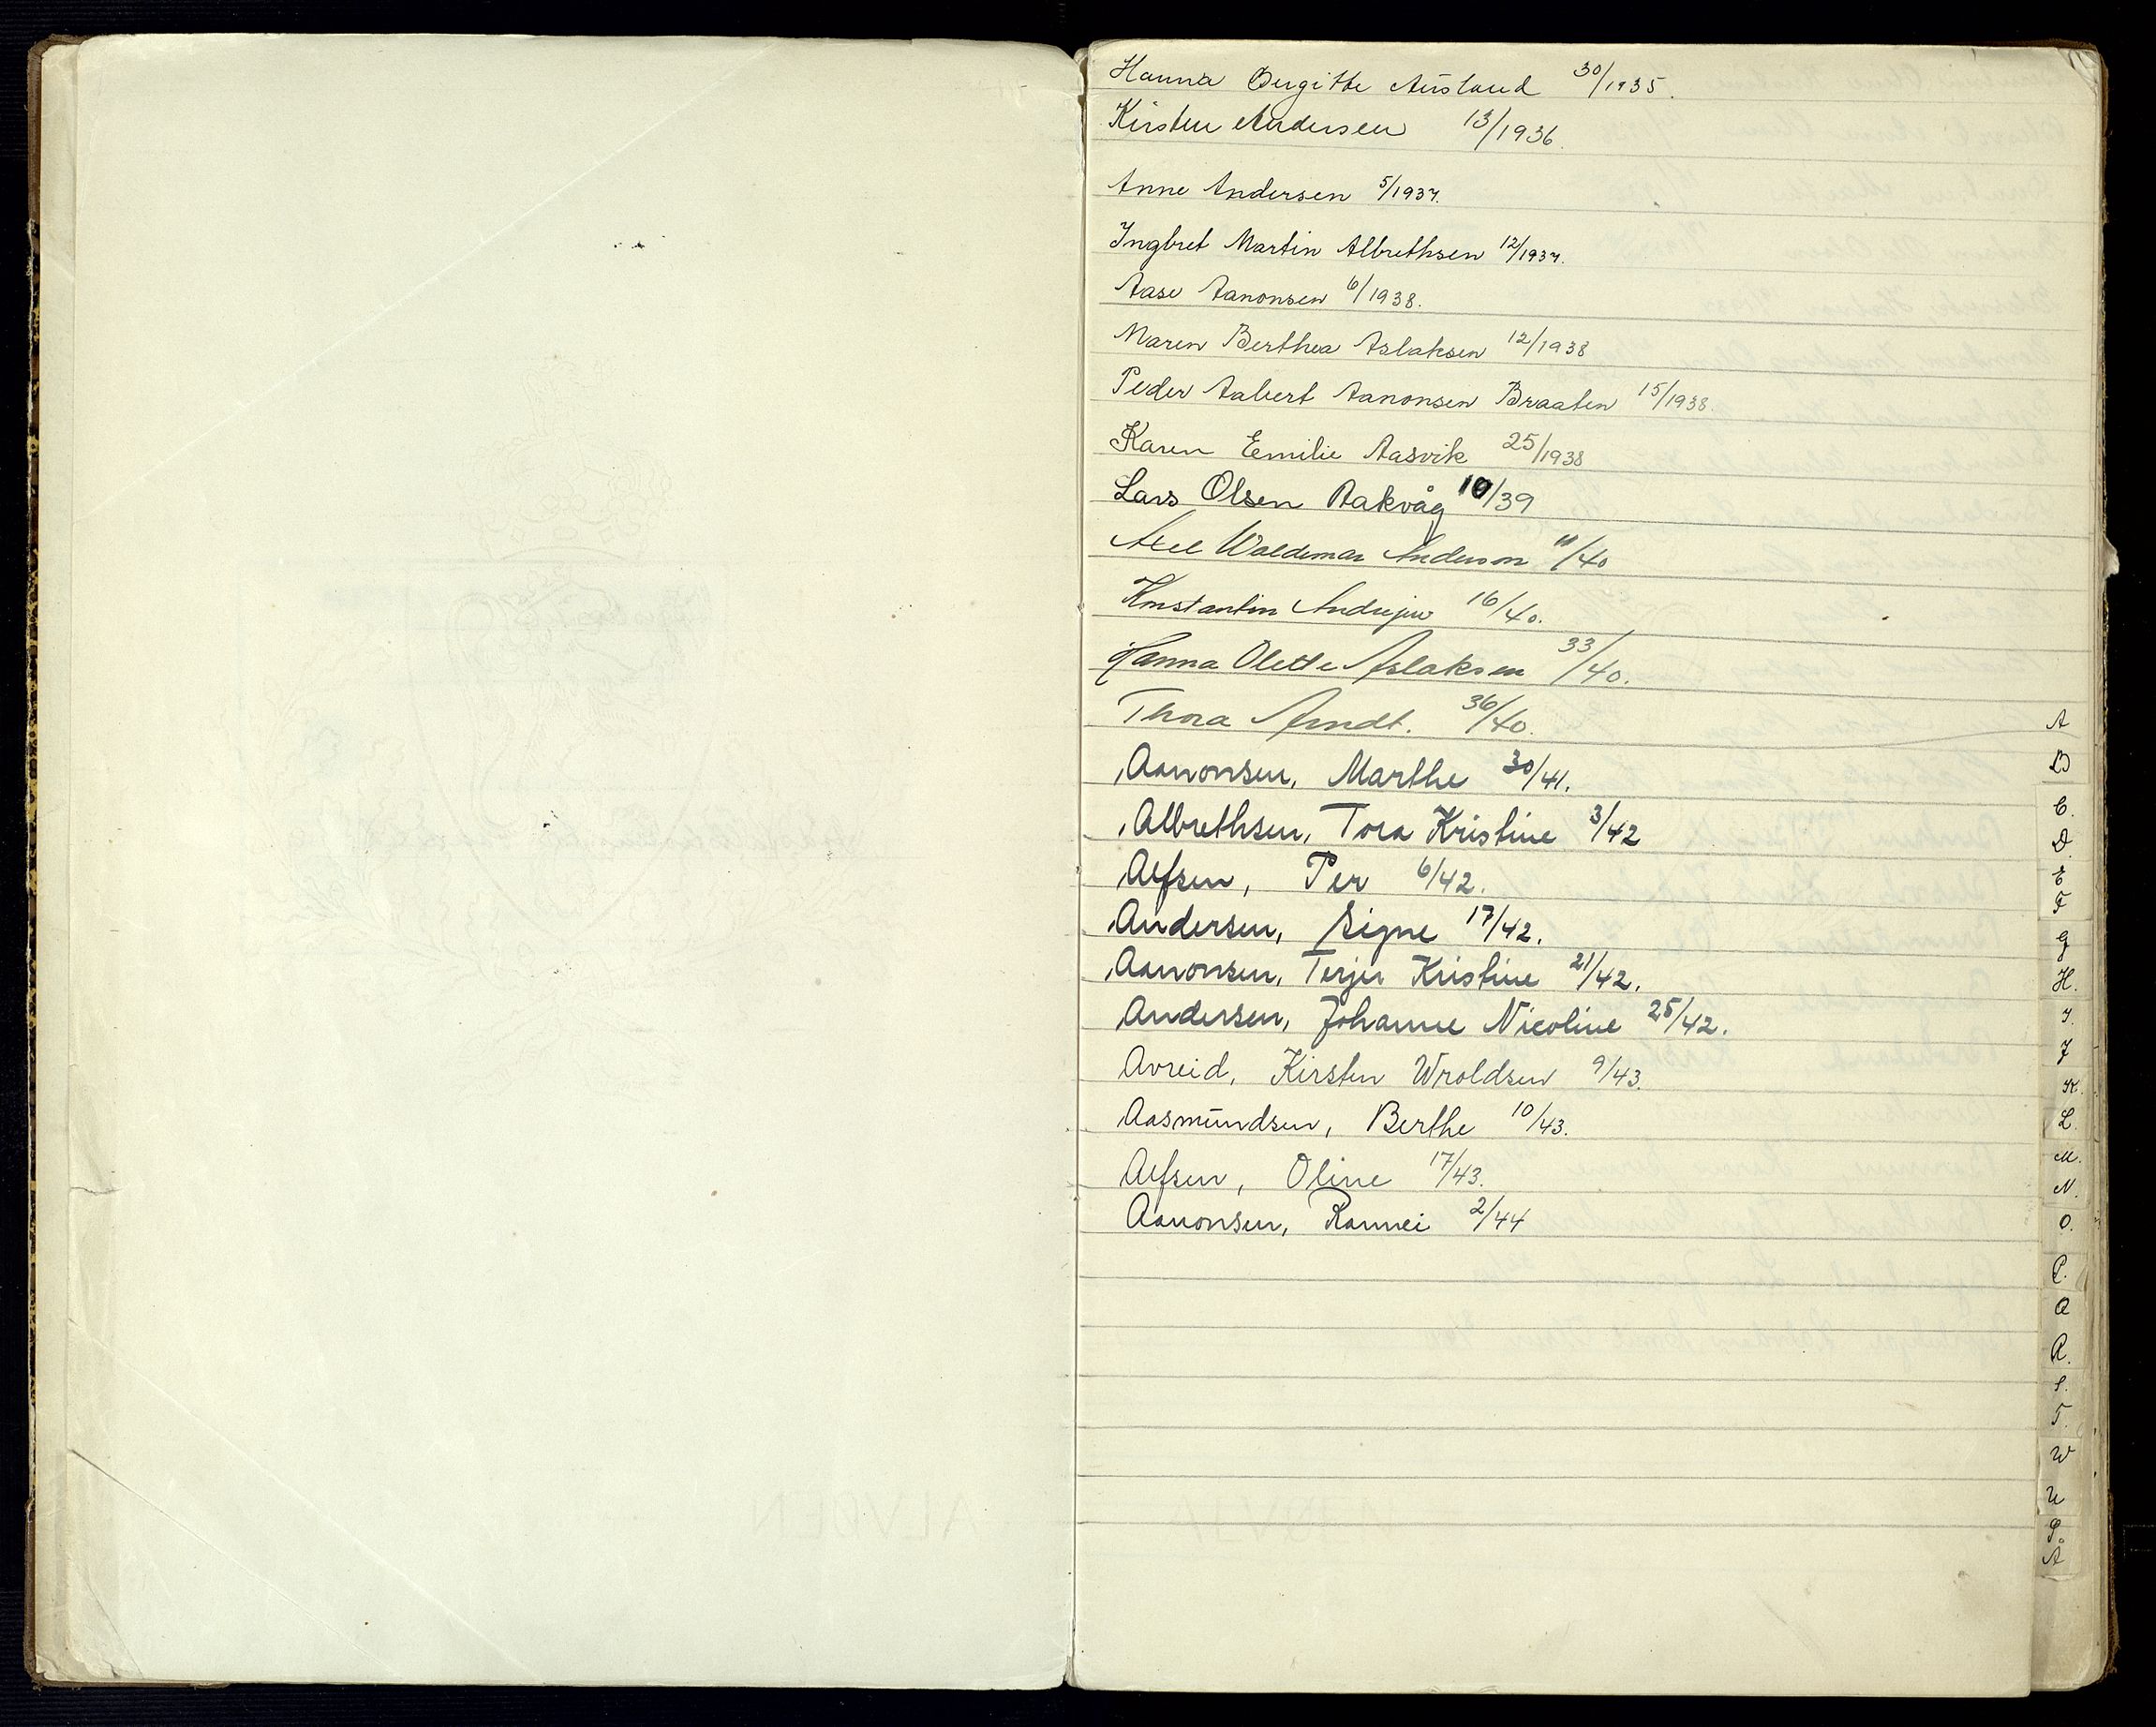 Hanna Birgitte Ausland 30/1935.
Kirsten Andersen 13/1936.
Anne Andersen 5/1937.
Ingbret Martin Albrethsen 12/1937.
Aase Aanonsen 6/1938.
Maren Berthea Aslaksen 12/1938
Peder Aalbert Aanonsen Braaten 15/1938.
Karen Emilie Aasvik 25/1938
Lars Olsen Aakvåg 10/39
Axel Waldemar Anderson 11/40
Konstantin Andrejew 16/40.
Hanna Olette Aslaksen 33/40.
Thora Arndt. 36/40.
Aanonsen, Marthe 30/41.
Albrethsen, Tora Kristine 3/42
Alfsen, Per 6/42.
Andersen, Signe 17/42.
Aanonsen, Terjer Kristine 21/42.
Andersen, Johanne Nicoline 25/42.
Avreid, Kirsten Wroldsen 9/43.
Aasmundsen, Berthe 10/43.
Alfsen, Oline 17/43.
Aanonsen, Rannei 2/44
A
B
C.
D.
E
F
G
H.
I.
J
K.
L.
M.
N.
O.
P.
Q
R.
S.
T.
W
U
Ø.
Å